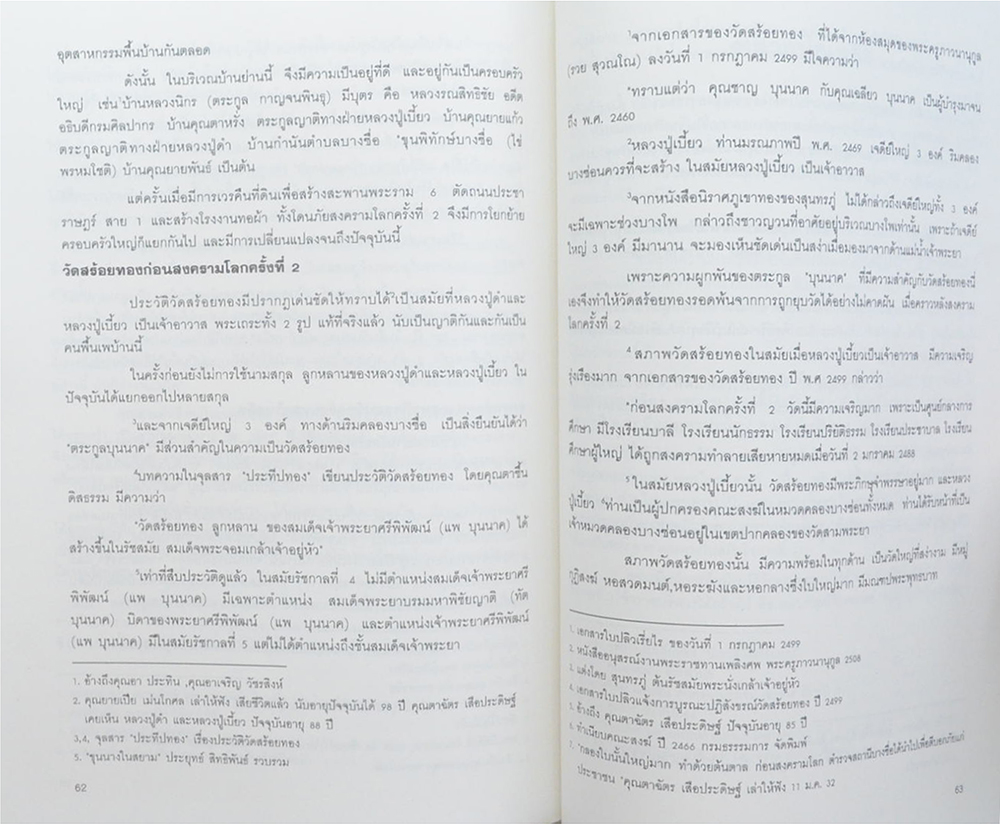 อุตสาหกรรมพื้นบ้านกันตลอด
ดังนั้น ในบริเวณบ้านย่านนี้ จึงมีความเป็นอยู่ที่ดี และอยู่กันเป็นครอบครัว
ใหญ่ เช่น ¹บ้านหลวงนิกร (ตระกูล กาญจนพินธุ) มีบุตร คือ หลวงรณสิทธิชัย อดีต
อธิบดีกรมศิลปากร บ้านคุณตาหรั่ง ตระกูลญาติทางฝ่ายหลวงปู่เบี้ยว บ้านคุณยายแก้ว
ตระกูลญาติทางฝ่ายหลวงปู่ดำ บ้านกำนันตำบลบางซื่อ "ขุนพิทักษ์บางซื่อ (ไข่
พรหมโชติ) บ้านคุณยายพันธ์ เป็นต้น
แต่ครั้นเมื่อมีการเวรคืนที่ดินเพื่อสร้างสะพานพระราม 6 ตัดถนนประชา
ราษฎร์ สาย 1 และสร้างโรงงานทอผ้า ทั้งโดนภัยสงครามโลกครั้งที่ 2 จึงมีการโยกย้าย
ครอบครัวใหญ่ก็แยกกันไป และมีการเปลี่ยนแปลงจนถึงปัจจุบันนี้
วัดสร้อยทองก่อนสงครามโลกครั้งที่ 2
ประวัติวัดสร้อยทองมีปรากฏเด่นชัดให้ทราบได้²เป็นสมัยที่หลวงปู่ดำและ
หลวงปู่เบี้ยว เป็นเจ้าอาวาส พระเถระทั้ง 2 รูป แท้ที่จริงแล้ว นับเป็นญาติกันและกันเป็น
คนพื้นเพบ้านนี้
ในครั้งก่อนยังไม่การใช้นามสกุล ลูกหลานของหลวงปู่ดำและหลวงปู่เบี้ยว ใน
ปัจจุบันได้แยกออกไปหลายสกุล
³และจากเจดีย์ใหญ่ 3 องค์ ทางด้านริมคลองบางซื่อ เป็นสิ่งยืนยันได้ว่า
"ตระกูลบุนนาค" มีส่วนสำคัญในความเป็นวัดสร้อยทอง
⁴บทความในจุลสาร "ประทีปทอง" เขียนประวัติวัดสร้อยทอง โดยคุณตาชื้น
ดิสธรรม มีความว่า
"วัดสร้อยทอง ลูกหลาน ของสมเด็จเจ้าพระยาศรีพิพัฒน์ (แพ บุนนาค) ได้
สร้างขึ้นในรัชสมัย สมเด็จพระจอมเกล้าเจ้าอยู่หัว"
⁵เท่าที่สืบประวัติดูแล้ว ในสมัยรัชกาลที่ 4 ไม่มีตำแหน่งสมเด็จเจ้าพระยาศรี
พิพัฒน์ (แพ บุนนาค) มีเฉพาะตำแหน่ง สมเด็จพระยาบรมมหาพิชัยญาติ (ทัต
บุนนาค) บิดาของพระยาศรีพิพัฒน์ (แพ บุนนาค) และตำแหน่งเจ้าพระยาศรีพิพัฒน์
(แพ บุนนาค) มีในสมัยรัชกาลที่ 5 แต่ไม่ได้ตำแหน่งถึงชั้นสมเด็จเจ้าพระยา
1. อ้างถึงคุณอา ประทิน ,คุณอาเจริญ วัชรสิงห์
2. คุณยายเปีย เม่นโกศล เล่าให้ฟัง เสียชีวิตแล้ว นับอายุปัจจุบันได้ 98 ปี คุณตาฉัตร เสือประดิษฐ์
เคยเห็น หลวงปู่ดำ และหลวงปู่เบี้ยว ปัจจุบันอายุ 88 ปี
3,4. จุลสาร "ประทีปทอง" เรื่องประวัติวัดสร้อยทอง
5. "ขุนนางในสยาม" ประยุทธ์ สิทธิพันธ์ รวบรวม
62
¹จากเอกสารของวัดสร้อยทอง ที่ได้จากห้องสมุดของพระครูภาวนานุกูล
(รวย สุวณโณ) ลงวันที่ 1 กรกฎาคม 2499 มีใจความว่า
"ทราบแต่ว่า คุณชาญ บุนนาค กับคุณเฉลียว บุนนาค เป็นผู้บำรุงมาจน
ถึง พ.ศ. 2460
²หลวงปู่เบี้ยว ท่านมรณภาพปี พ.ศ. 2469 เจดีย์ใหญ่ 3 องค์ ริมคลอง
บางซ่อนควรที่จะสร้าง ในสมัยหลวงปู่เบี้ยว เป็นเจ้าอาวาส
³จากหนังสือนิราศภูเขาทองของสุนทรภู่ ไม่ได้กล่าวถึงเจดีย์ใหญ่ทั้ง 3 องค์
จะมีเฉพาะช่วงบางโพ กล่าวถึงชาวญวนที่อาศัยอยู่บริเวณบางโพเท่านั้น เพราะถ้าเจดีย์
ใหญ่ 3 องค์ มีมานาน จะมองเห็นชัดเด่นเป็นสง่าเมื่อมองมาจากด้านแม่น้ำเจ้าพระยา
เพราะความผูกพันของตระกูล "บุนนาค" ที่มีความสำคัญกับวัดสร้อยทองนี้
เองจึงทำให้วัดสร้อยทองรอดพ้นจากการถูกยุบวัดได้อย่างไม่คาดฝัน เมื่อคราวหลังสงคราม
โลกครั้งที่ 2
⁴สภาพวัดสร้อยทองในสมัยเมื่อหลวงปู่เบี้ยวเป็นเจ้าอาวาส มีความเจริญ
รุ่งเรืองมาก จากเอกสารของวัดสร้อยทอง ปี พ.ศ 2499 กล่าวว่า
"ก่อนสงครามโลกครั้งที่ 2 วัดนี้มีความเจริญมาก เพราะเป็นศูนย์กลางการ
ศึกษา มีโรงเรียนบาลี โรงเรียนนักธรรม โรงเรียนปริยัติธรรม โรงเรียนประชาบาล โรงเรียน
ศึกษาผู้ใหญ่ ได้ถูกสงครามทำลายเสียหายหมดเมื่อวันที่ 2 มกราคม 2488
⁵ในสมัยหลวงปู่เบี้ยวนั้น วัดสร้อยทองมีพระภิกษุจำพรรษาอยู่มาก และหลวง
ปู่เบี้ยว ⁶ท่านเป็นผู้ปกครองคณะสงฆ์ในหมวดคลองบางซ่อนทั้งหมด ท่านได้รับหน้าที่เป็น
เจ้าหมวดคลองบางซ่อนอยู่ในเขตปากคลองของวัดสามพระยา
สภาพวัดสร้อยทองนั้น มีความพร้อมในทุกด้าน เป็นวัดใหญ่ที่สง่างาม มีหมู่
กุฏิสงฆ์ หอสวดมนต์,หอระฆังและหอกลางซึ่งใบใหญ่มาก มีมณฑปพระพุทธบาท
1. เอกสารใบปลิวเรี่ยไร ของวันที่ 1 กรกฎาคม 2499
2. หนังสืออนุสรณ์งานพระราชทานเพลิงศพ พระครูภาวนานุกูล 2508
3. แต่งโดย สุนทรภู่ ต้นรัชสมัยพระนั่งเกล้าเจ้าอยู่หัว
4. เอกสารใบปลิวแจ้งการบูรณะปฏิสังขรณ์วัดสร้อยทอง ปี 2499
5. อ้างถึง คุณตาฉัตร เสือประดิษฐ์ ปัจจุบันอายุ 85 ปี
6. ทำเนียบคณะสงฆ์ ปี 2466 กรมธรรรมการ จัดพิมพ์
7. "กลองใบนั้นใหญ่มาก ทำด้วยต้นตาล ก่อนสงครามโลก ตำรวจสถานีบางซื่อได้นำไปเพื่อตีบอกภัยแก่
ประชาชน "คุณตาฉัตร เสือประดิษฐ์ เล่าให้ฟัง 11 ม.ค. 32
63